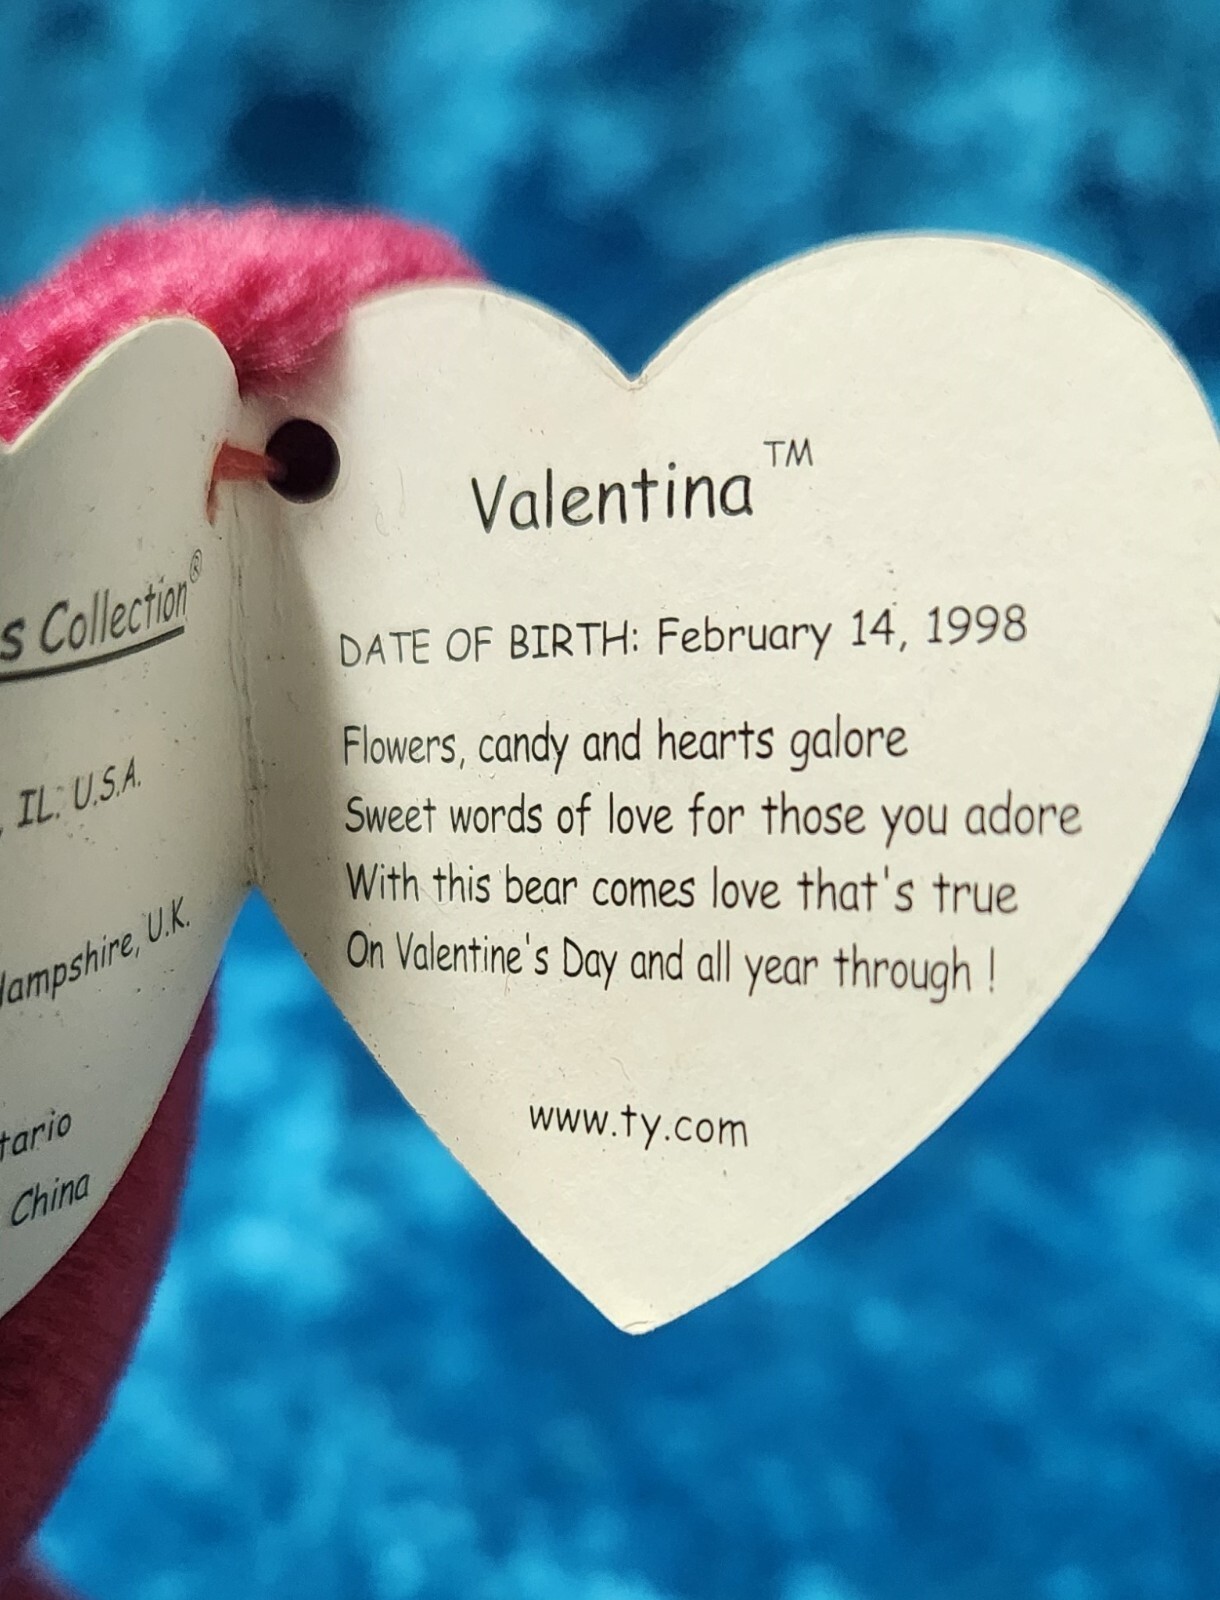 s Collection®
, IL. U.S.A.
Hampshire, U.K.
tario
China
Valentina™
DATE OF BIRTH: February 14, 1998
Flowers, candy and hearts galore
Sweet words of love for those you adore
With this bear comes love that's true
On Valentine's Day and all year through !
www.ty.com